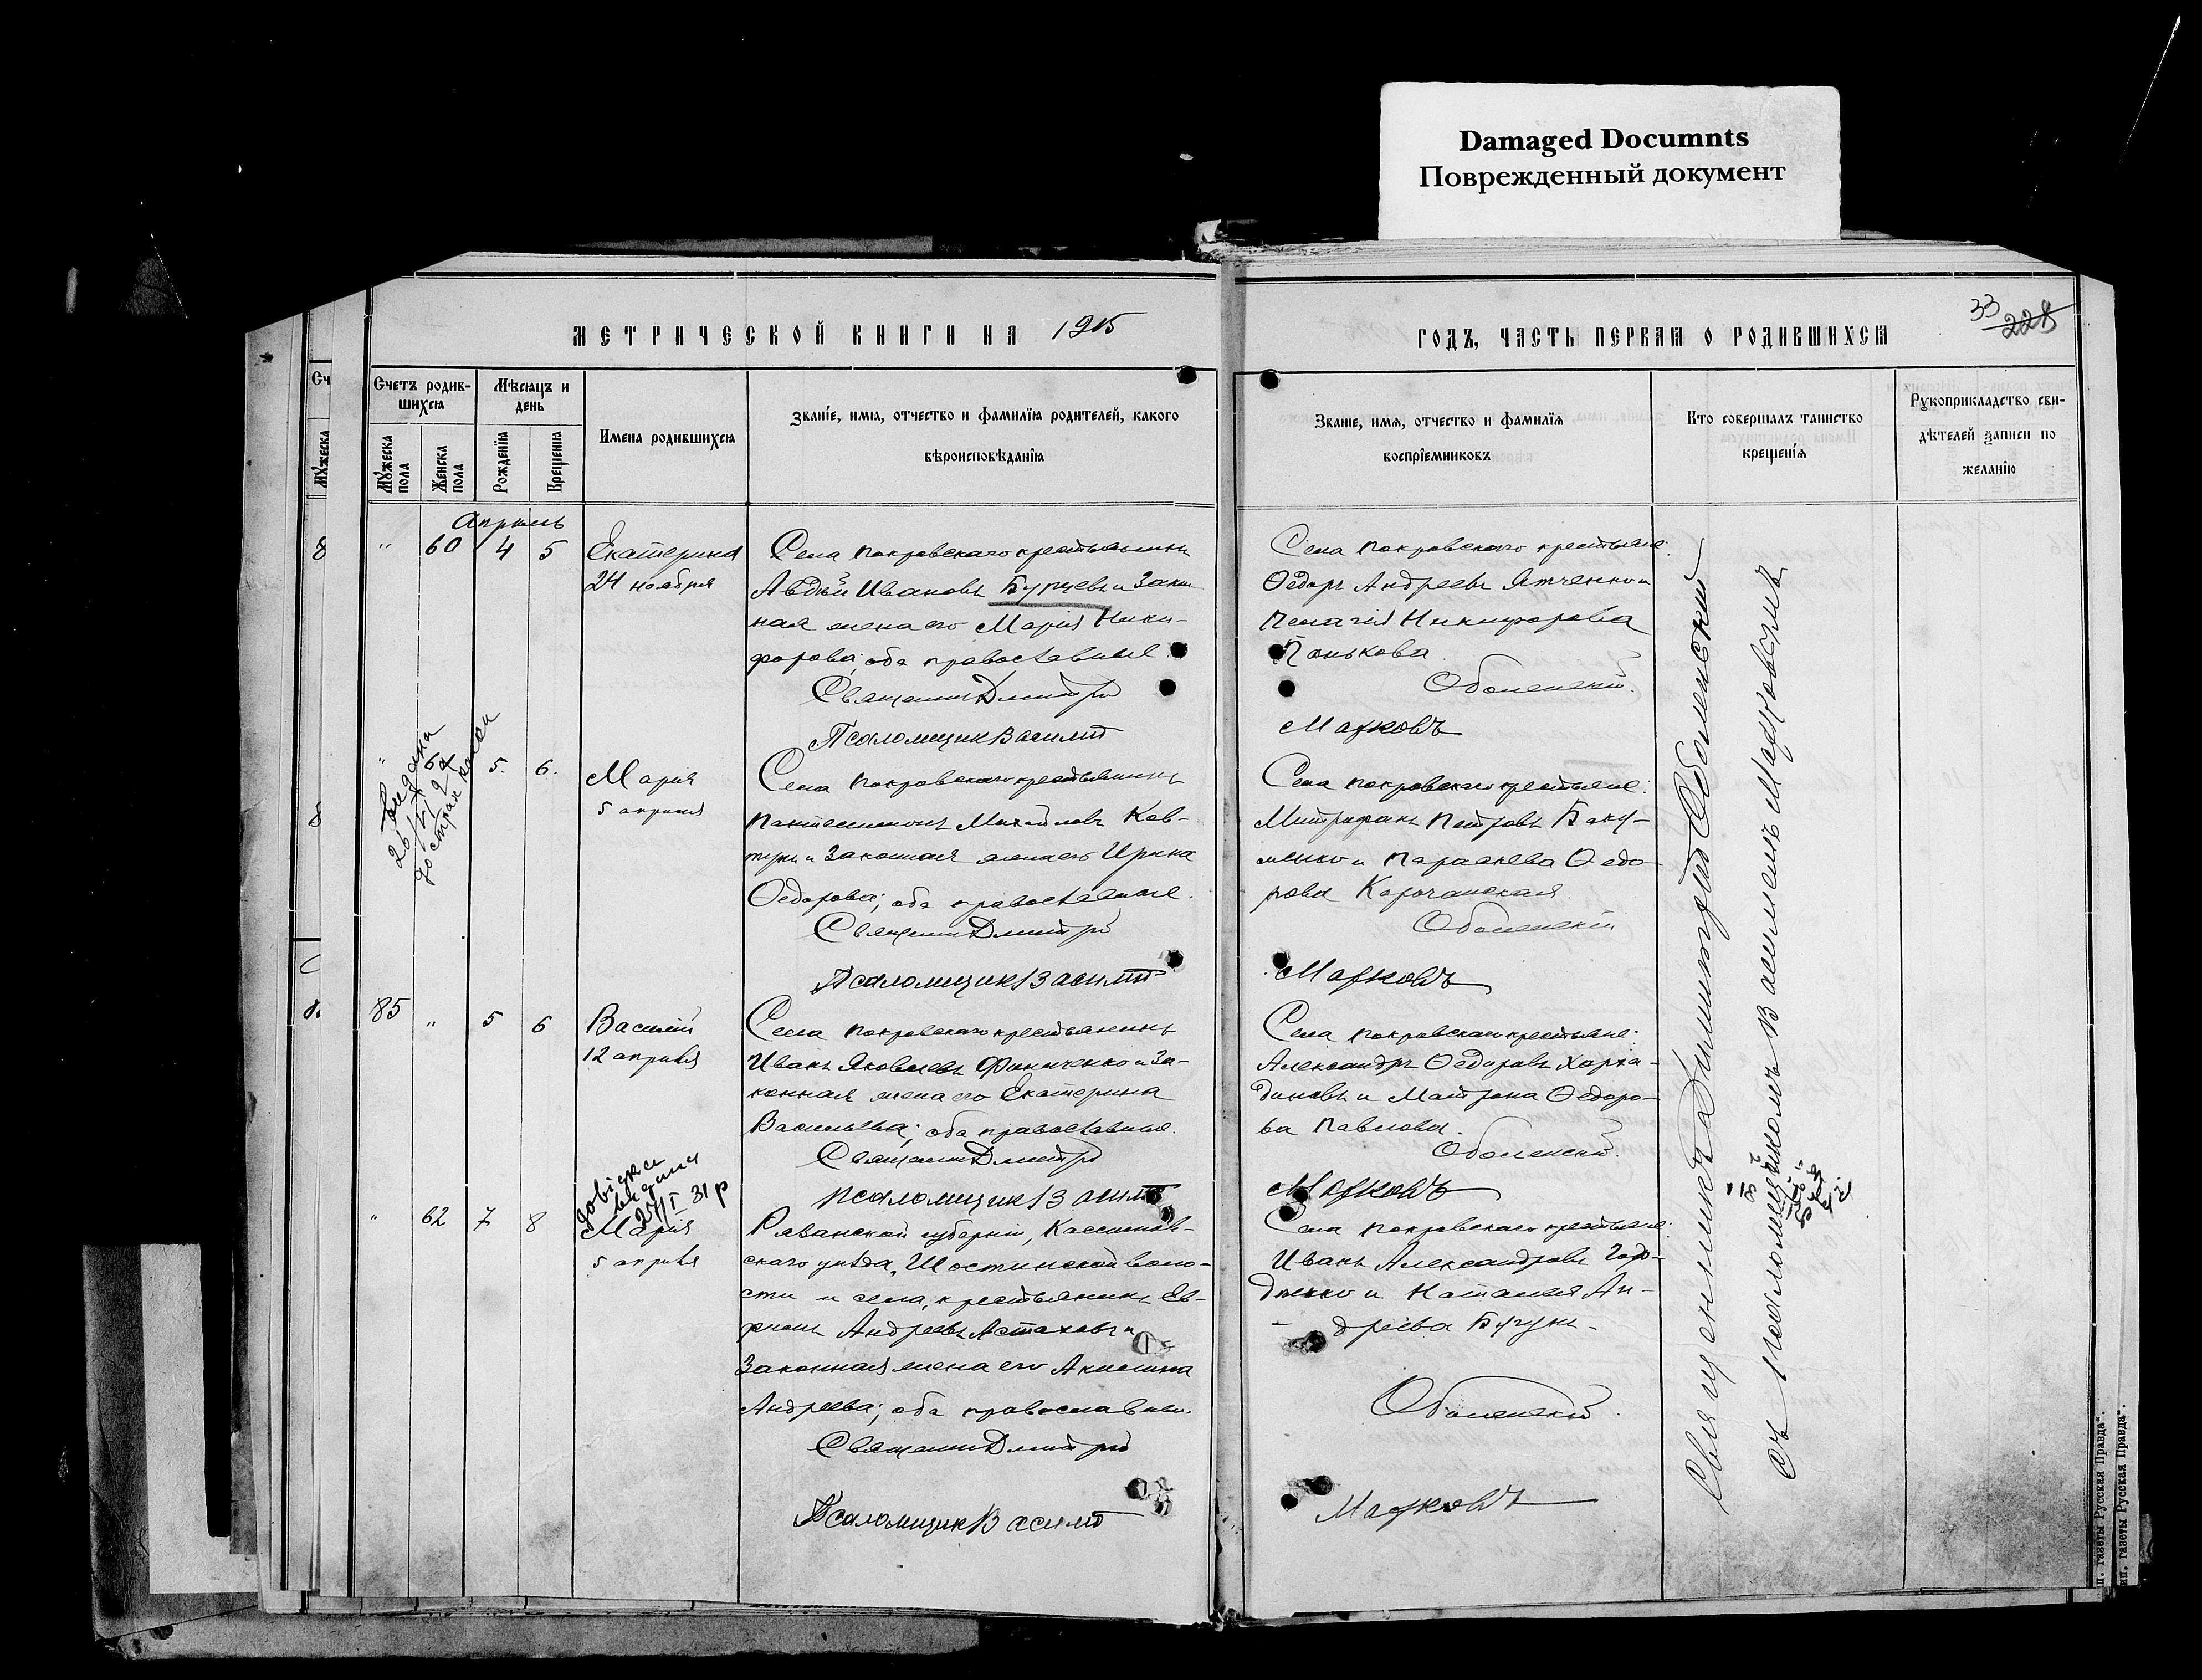 Damaged Documnts
Поврежденный документ
МЕТРИЧЕСКОЙ КНИГИ НА 1915
ГОДЪ, ЧАСТЬ ПЕРВАЯ О РОДИВШИХСЯ
33
228
Сч
Мужеска
Счетъ родившихся
Мужеска пола
Женска пола
Мѣсяцъ и день
Рожденія
Крещенія
Имена родившихся
Званіе, имя, отчество и фамилія родителей, какого
вѣроисповѣданія
Званіе, имя, отчество и фамилія
воспріемниковъ
Кто совершалъ таинство
крещенія
Рукоприкладство сви-
дѣтелей записи по
желанію
Апрель
" 60 4 5
Екатерина
24 ноября
Села Покровскаго крестьянинъ
Авдѣй Ивановъ Бурцевъ и закон
ная жена его Марія Ники-
форова; оба православные.
Священник Дмитрій
Псаломщик Василій
Села Покровскаго крестьяне:
Ѳедоръ Андреевъ Ятченко и
Пелагія Никифорова
Панькова
Оболенскій.
Марковъ
" 5. 6.
Марія
5 апреля
Села Покровскаго крестьянинъ
Пантелеимонъ Михайловъ Ков-
тунъ и законная жена его Ирина
Ѳедорова; оба православные.
Священник Дмитрій
Псаломщик Василій
Села Покровскаго крестьяне:
Митрофанъ Петровъ Баку-
менко и Параскева Ѳедо-
рова Корочанская
Оболенскій
Марковъ
85 " 5 6
Василій
12 апрѣля
Села Покровскаго крестьянинъ
Иванъ Яковлевъ Финиченко и за-
конная жена его Екатерина
Васильева; оба православные.
Священник Дмитрій
Псаломщик Василій
Села Покровскаго крестьяне:
Александръ Ѳедоровъ Харка-
диновъ и Матрона Ѳедоро-
ва Павлова.
Оболенскій
Марковъ
довідка
видана
25/I 31 р
" 62 7 8
Марія
5 апрѣля
Рязанской губерніи, Касимов-
скаго уѣзда, Шостинской воло-
сти и села, крестьянинъ Ев-
фимъ Андреевъ Астаховъ и
законная жена его Акилина
Андреева; оба православны.
Священник Дмитрій
Псаломщик Василій
Села Покровскаго крестьяне:
Иванъ Александровъ Горо-
денко и Наталія Ан-
дреева Бугунъ
Оболенскій
Марковъ
Священникъ Димитрій Оболенскій
съ псаломщикомъ Василіемъ Марковымъ
п. газеты Русская Правда".
ип. газеты Русская Правда".